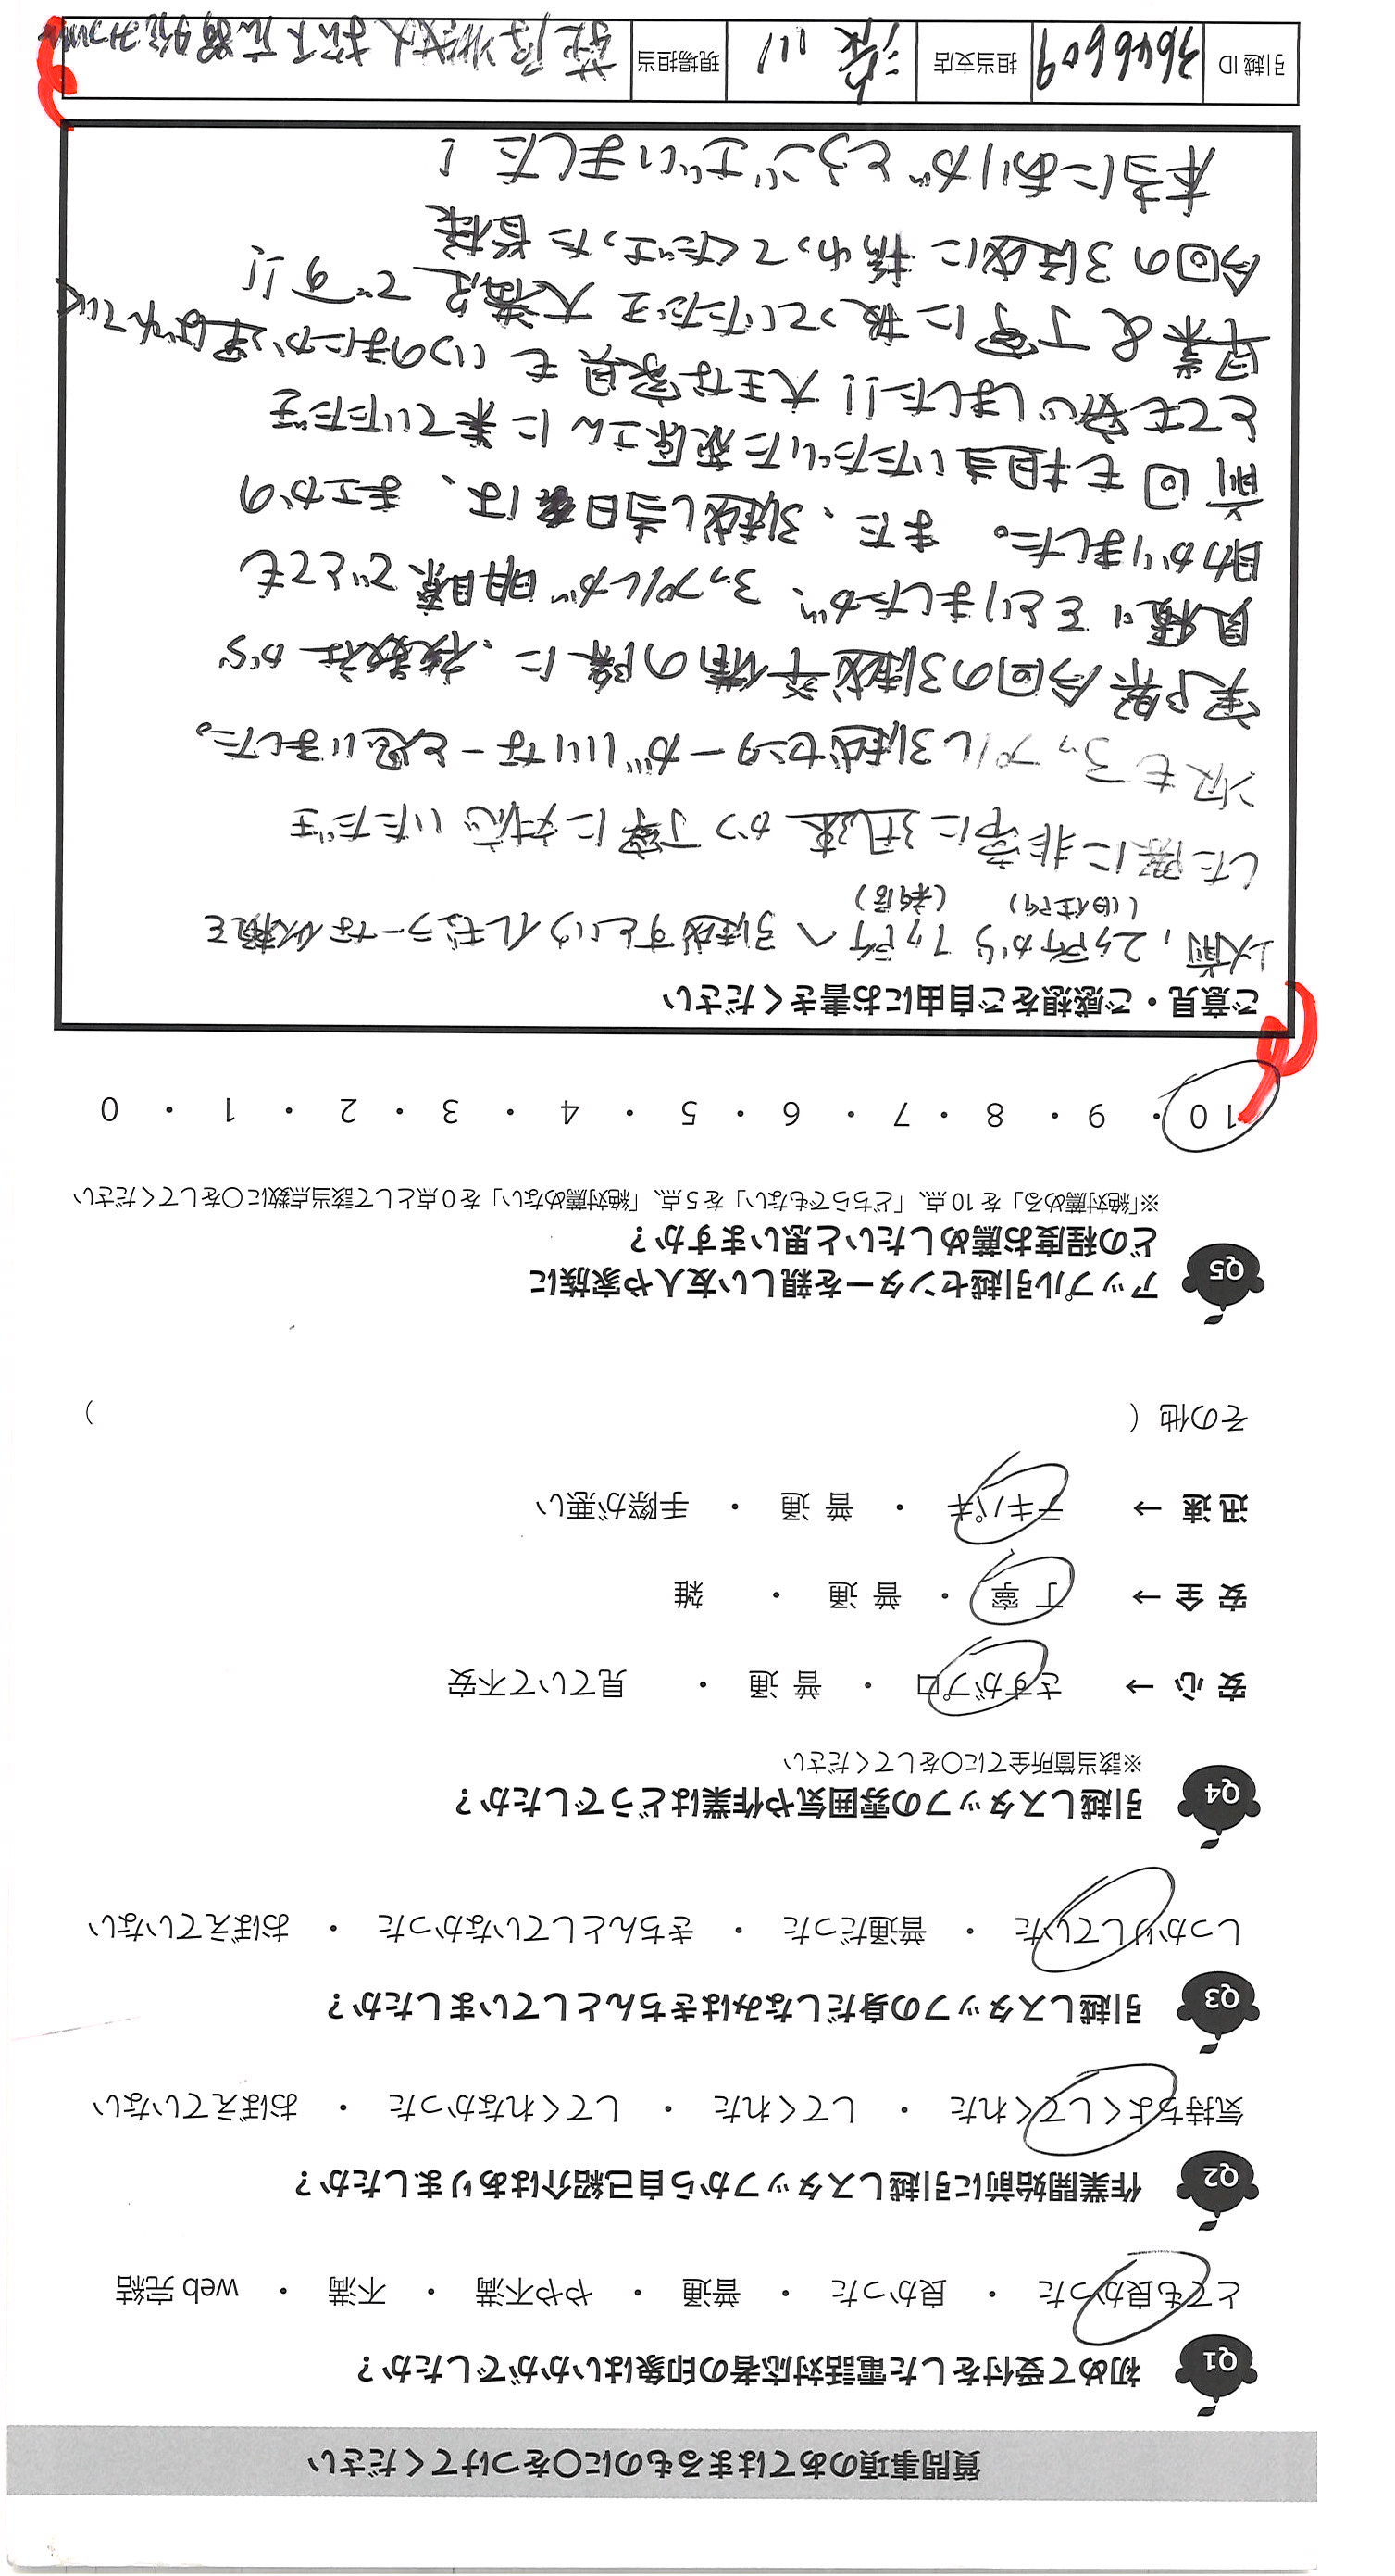 質問事項のあてはまるものに〇をつけてください
Q1 初めて受付をした電話対応者の印象はいかがでしたか？
とても良かった ・ 良かった ・ 普通 ・ やや不満 ・ 不満 ・ web完結
Q2 作業開始前に引越しスタッフから自己紹介はありましたか？
気持ちよくしてくれた ・ してくれた ・ してくれなかった ・ おぼえていない
Q3 引越しスタッフの身だしなみはきちんとしていましたか？
しっかりしていた ・ 普通だった ・ きちんとしていなかった ・ おぼえていない
Q4 引越しスタッフの雰囲気や作業はどうでしたか？
※該当箇所全てに〇をしてください
安心 → さすがプロ ・ 普通 ・ 見ていて不安
安全 → 丁寧 ・ 普通 ・ 雑
迅速 → テキパキ ・ 普通 ・ 手際が悪い
その他（ ）
Q5 アップル引越センターを親しい友人や家族に
どの程度お薦めしたいと思いますか？
※「絶対薦める」を10点、「どちらでもない」を5点、「絶対薦めない」を0点として該当点数に〇をしてください
10 ・ 9 ・ 8 ・ 7 ・ 6 ・ 5 ・ 4 ・ 3 ・ 2 ・ 1 ・ 0
ご意見・ご感想をご自由にお書きください
以前、2ヶ所から1ヶ所へ引越すというイレギュラーな依頼を
（旧住所）（新居）
した際に非常に迅速かつ丁寧に対応いただき
次もアップル引越センターがいいなーと思いました。
実際今回の引越準備の際に、複数社から
見積りをとりましたが、アップルが明瞭でとても
助かりました。また、引越し当日は、まさかの
前回も担当いただいた萩原さんに来ていただき
とても安心しました!! 大きな家具もいつのまにか運ばれていく
早業&丁寧に扱っていただき大満足です!!
今回の引越に携わってくださった皆様
本当にありがとうございました！
引越ID 3646609 担当支店 現場担当